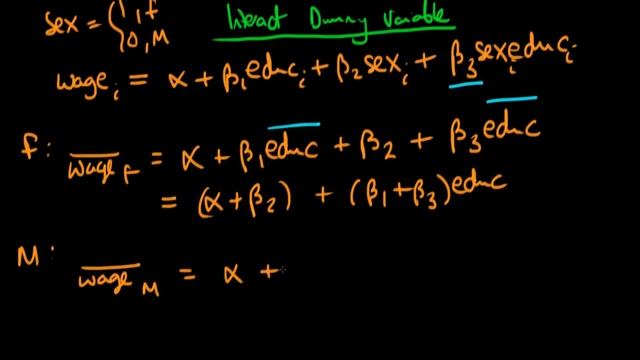 Interact Dummy Variable
sex = { 1, f
0, M
wage_i = α + β₁educ_i + β₂sex_i + β₃sex_i educ_i
f: \overline{wage}_F = α + β₁\overline{educ} + β₂ + β₃\overline{educ}
= (α+β₂) + (β₁+β₃)educ
M: \overline{wage}_M = α +